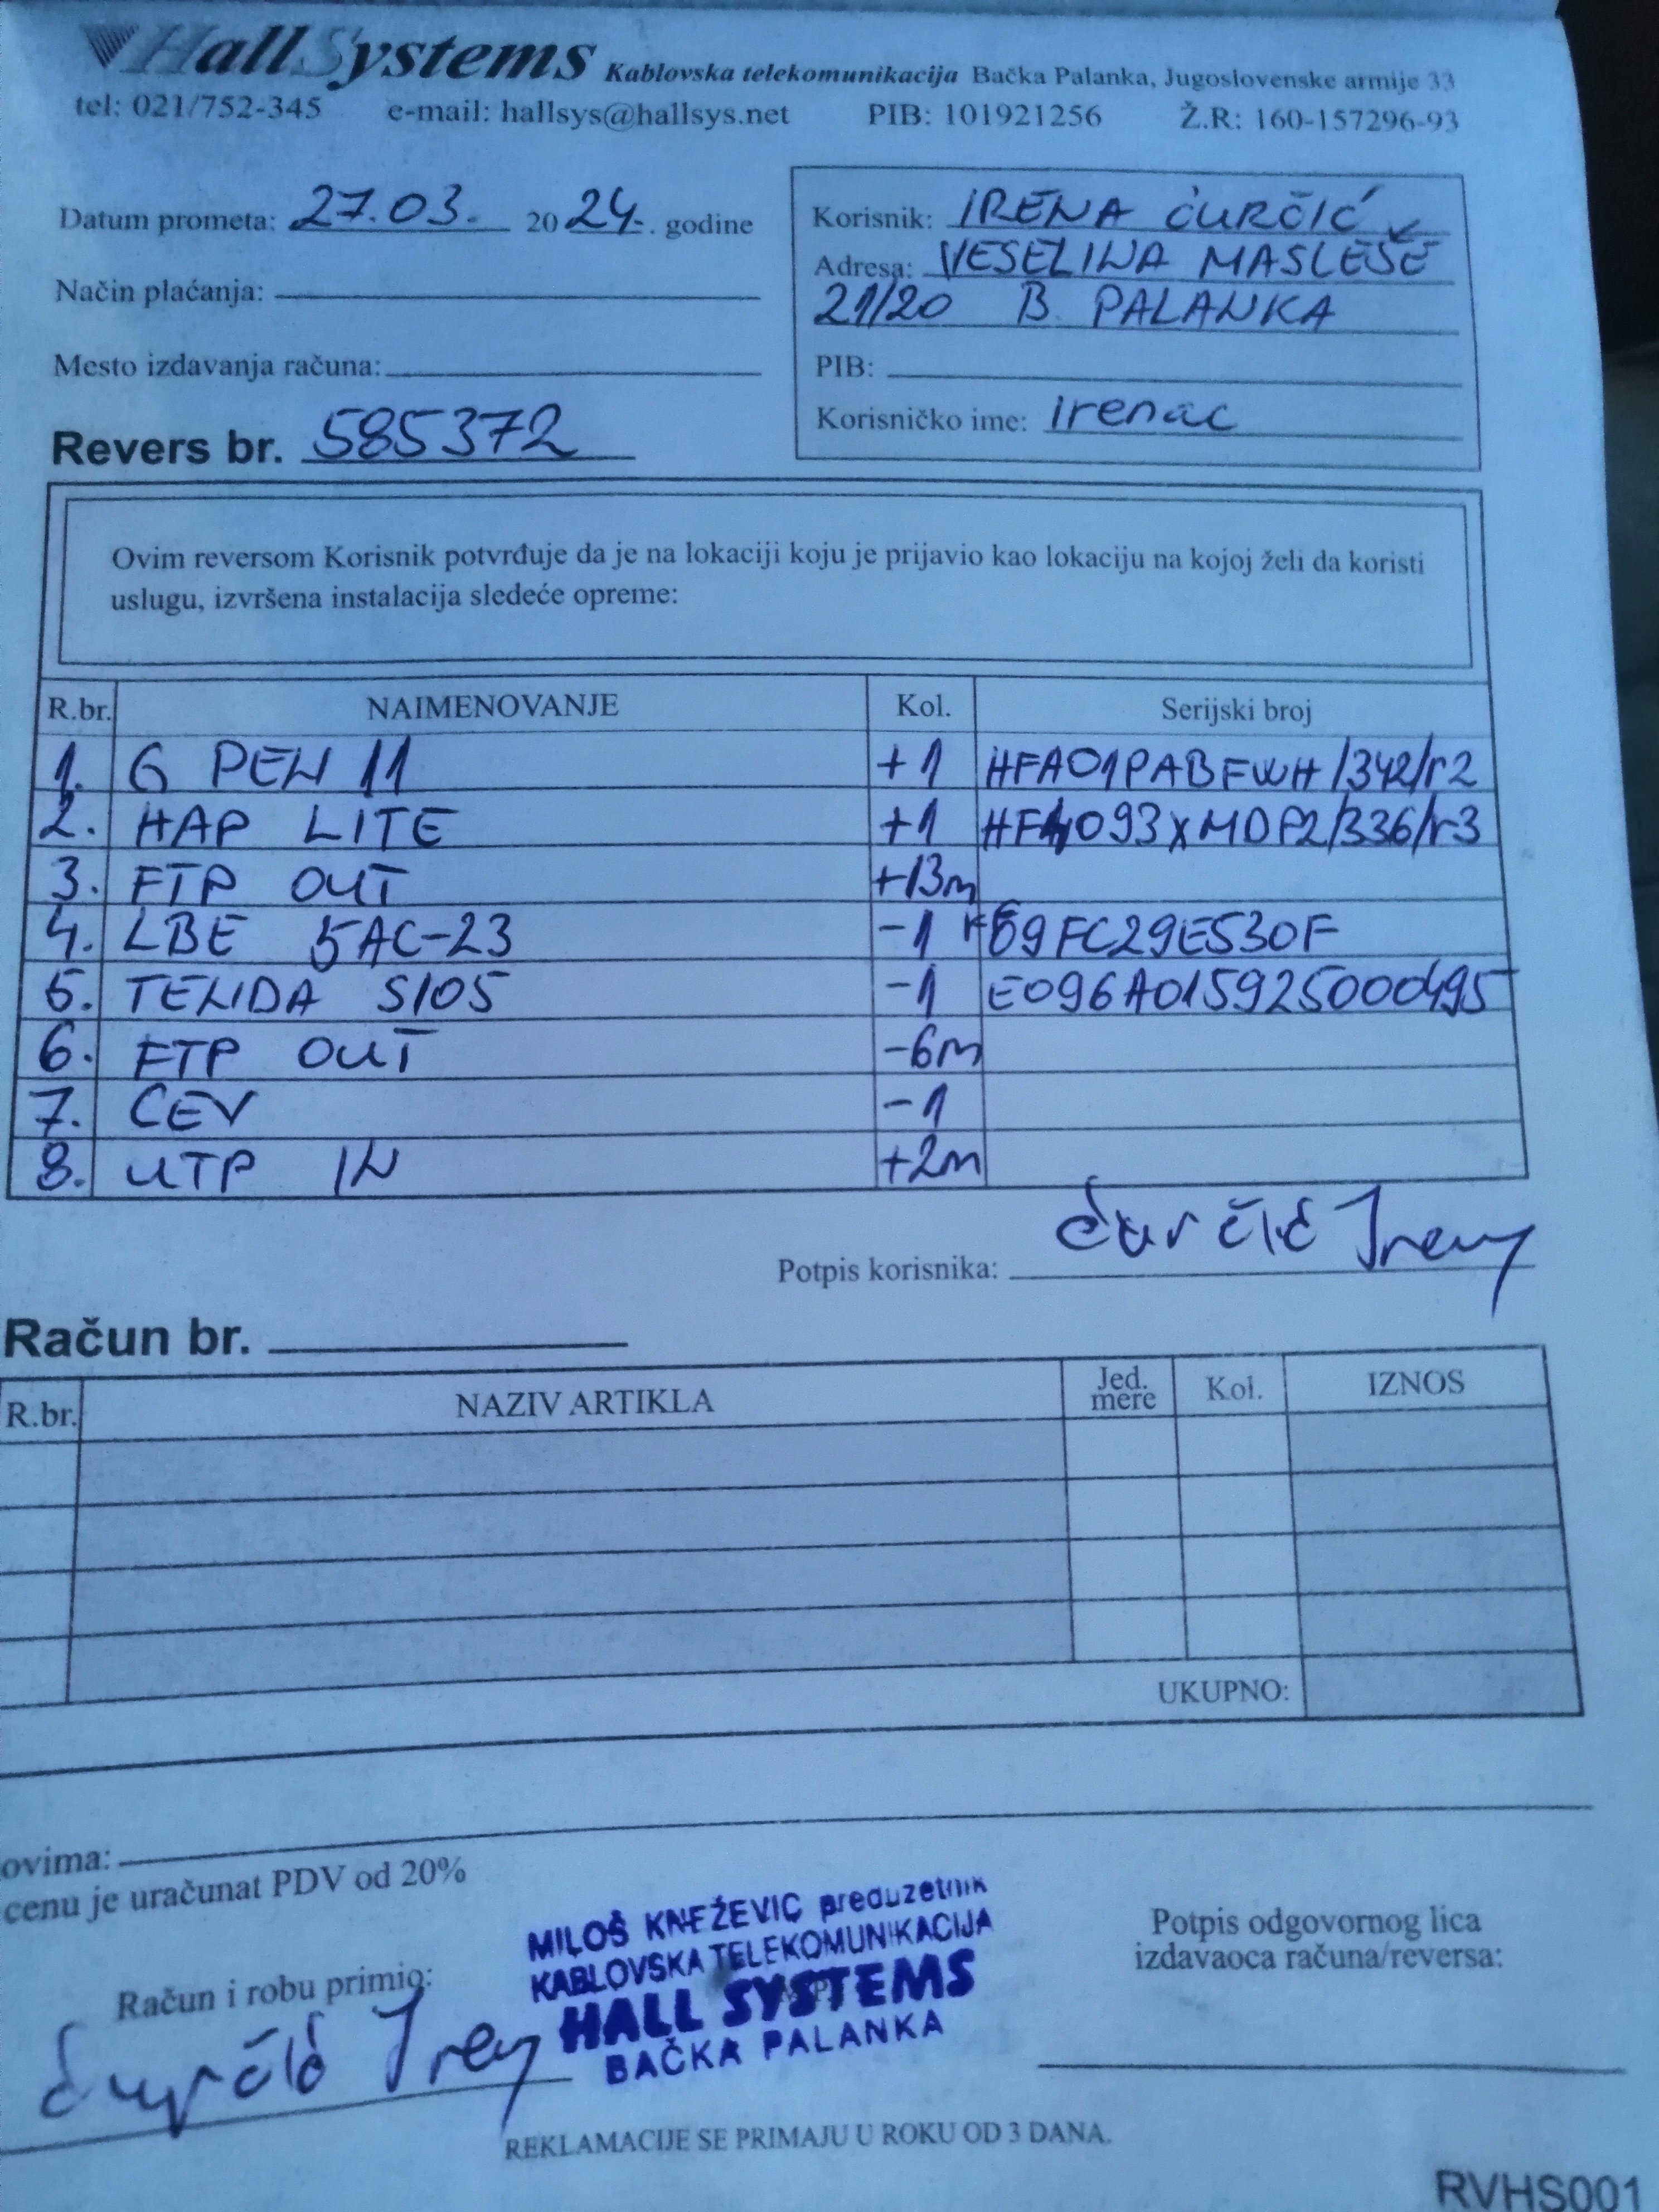 HallSystems Kablovska telekomunikacija Bačka Palanka, Jugoslovenske armije 33
tel: 021/752-345 e-mail: hallsys@hallsys.net PIB: 101921256 Ž.R: 160-157296-93
Datum prometa: 27.03. 2024. godine
Način plaćanja:
Mesto izdavanja računa:
Revers br. 585372
Korisnik: IRENA ĆURČIĆ
Adresa: VESELINA MASLEŠE
21/20 B. PALANKA
PIB:
Korisničko ime: irenac
Ovim reversom Korisnik potvrđuje da je na lokaciji koju je prijavio kao lokaciju na kojoj želi da koristi
uslugu, izvršena instalacija sledeće opreme:
R.br. NAIMENOVANJE Kol. Serijski broj
1. G PEN 11 +1 HFA01PABFWH/342/r2
2. HAP LITE +1 HF4093XMDP2/336/r3
3. FTP OUT +13m
4. LBE 5AC-23 -1 F69FC29E530F
5. TENDA S105 -1 E096A015925000495
6. FTP OUT -6m
7. CEV -1
8. UTP IN +2m
Potpis korisnika: Ćurčić Irena
Račun br.
R.br. NAZIV ARTIKLA Jed. mere Kol. IZNOS
UKUPNO:
ovima:
cenu je uračunat PDV od 20%
Račun i robu primio:
Ćurčić Irena
MILOŠ KNEŽEVIĆ preduzetnik
KABLOVSKA TELEKOMUNIKACIJA
HALL SYSTEMS
BAČKA PALANKA
Potpis odgovornog lica
izdavaoca računa/reversa:
REKLAMACIJE SE PRIMAJU U ROKU OD 3 DANA.
RVHS001